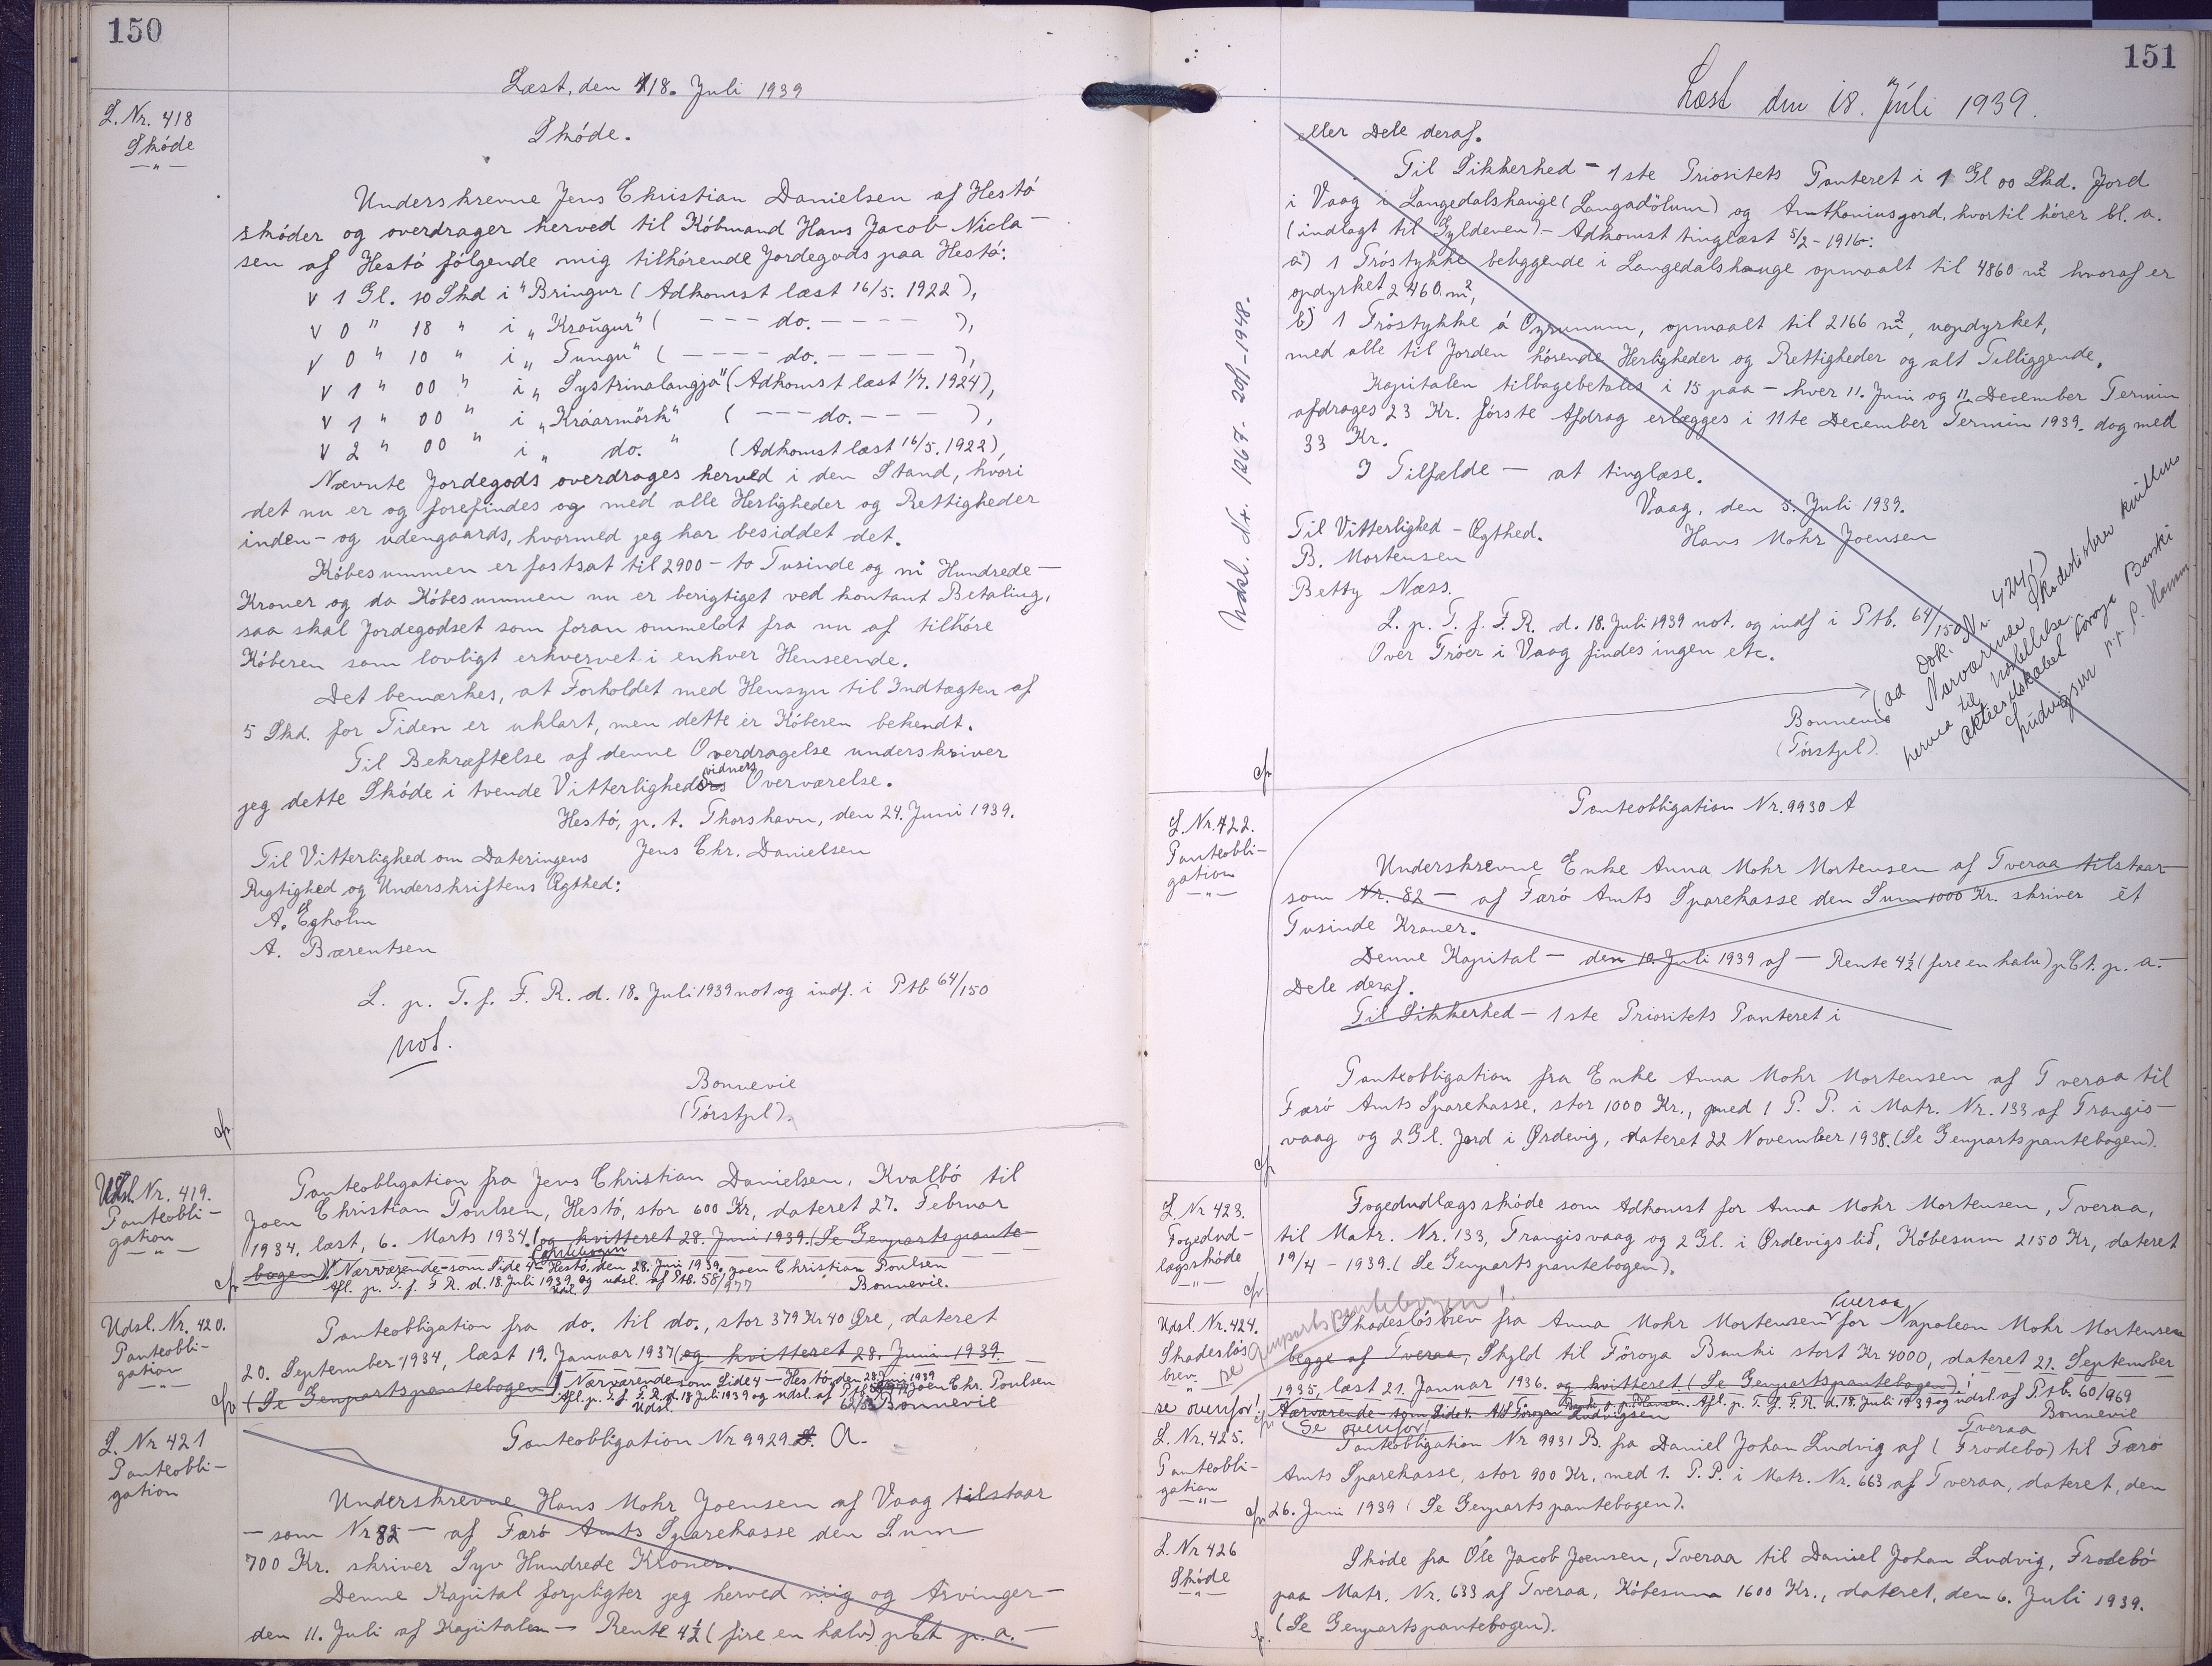 150
Læst, den 18. Juli 1939
L. Nr. 418
Skóde
—"—
Skóde.
Underskrevne Jens Christian Danielsen af Hestó
skóder og overdrager herved til Kóbmand Hans Jacob Nicla-
sen af Hestó fólgende mig tilhórende Jordegods paa Hestó:
v 1 Gl. 10 Skd i "Bringur ( Adkomst læst 16/5. 1922 ),
v 0 " 18 " i „Kroúgur" ( - - - do. - - - - ),
v 0 " 10 " i „Tungu" ( - - - - do. - - - - - ),
v 1 " 00 " i „Systrinalangjá" (Adkomst læst 1/7. 1924),
v 1 " 00 " i „Kráarmörk" ( - - - do. - - - ),
v 2 " 00 " i „ do. " (Adkomst læst 16/5. 1922),
Nævnte Jordegods overdrages herved i den Stand, hvori
det nu er og forefindes og med alle Herligheder og Rettigheder
inden- og udengaards, hvormed jeg har besiddet det.
Kóbesummen er fastsat til 2900 - to Tusinde og ni Hundrede -
Kroner og da Kóbesummen nu er berigtiget ved kontant Betaling,
saa skal Jordegodset som foran ommeldt fra nu af tilhóre
Kóberen som lovligt erhvervet i enhver Henseende.
Det bemærkes, at Forholdet med Hensyn til Indtægten af
5 Skd. for Tiden er uklart, men dette er Kóberen bekendt.
Til Bekræftelse af denne Overdragelse underskriver
vidners
jeg dette Skóde i tvende Vitterligheds Overværelse.
Hestó, p. t. Thorshavn, den 24. Juni 1939.
Til Vitterlighed om Dateringens Jens Chr. Danielsen
Rigtighed og Underskriftens Ægthed:
A. Egholm
A. Bærentsen
L. p. T. f. F. R. d. 18. Juli 1939 not og indf. i Ptb 64/150
not.
Bonnevie
(Tórstpl).
cfr
Udsl. Nr. 419.
Panteobli-
gation
—"—
Panteobligation fra Jens Christian Danielsen, Kvalbó til
Joen Christian Poulsen, Hestó, stor 600 Kr, dateret 27. Februar
1934, læst, 6. Marts 1934. (og kvitteret 28. Juni 1939. (Se Genpartspante-
bogen). Nærværende - som Side 4 - Hestó, den 28. Juni 1939. Joen Christian Poulsen
Afl. p. T. f. F R. d. 18 Juli 1939 og udsl. af Ptb. 58/977 Bonnevie.
Udsl. Nr. 420.
Panteobli-
gation
—"—
Panteobligation fra do. til do., stor 379 Kr 40 Øre, dateret
20. September 1934, læst 19. Januar 1937 (og kvitteret 28. Juni 1939.
(Se Genpartspantebogen). Nærværende - som Side 4 - Hestó, den 28. Juni 1939 Joen Chr. Poulsen
Afl. p. T. f. F. R. d. 18 Juli 1939 og udsl. af Ptb Bonnevie
L. Nr 421
Panteobli-
gation
Panteobligation Nr 9929 A.
Underskrevne Hans Mohr Joensen af Vaag tilstaar
- som Nr 82 - af Færó Amts Sparekasse den Sum
700 Kr. skriver Syv Hundrede Kroner.
Denne Kapital forpligter jeg herved mig og Arvinger -
den 11. Juli af Kapitalen - Rente 4½ (fire en halv) pCt p. a. -
151
Læst den 18. Júli 1939.
eller Dele deraf.
Til Sikkerhed - 1ste Prioritets Panteret i 1 Gl 00 Skd. Jord
i Vaag i Langedalshauge (Langadölum) og Anthoniusgord, hvortil hórer bl. a.
(indlagt til Gyldenen) - Adkomst tinglæst 5/2 - 1916:
a) 1 Tróstykke beliggende i Langedalshauge opmaalt til 4860 m² hvoraf er
opdyrket 2460 m²,
b) 1 Tróstykke á Oyrunum, opmaalt til 2166 m², uopdyrket,
med alle til Jorden hórende Herligheder og Rettigheder og alt Tilliggende.
Kapitalen tilbagebetales i 15 paa - hver 11. Juni og 11. December Termin
afdrages 23 Kr. fórste Afdrag erlægges i 11te December Termin 1939. dog med
33 Kr.
I Tilfælde - at tinglæse.
Vaag, den 5. Juli 1939.
Til Vitterlighed - Ægthed. Hans Mohr Joensen
B. Mortensen
Betty Næss.
L. p. T. f. F. R. d. 18. Juli 1939 not. og indf i Ptb. 64/150
Over Tróer i Vaag findes ingen etc.
Bonnevie
(Tórstpl).
Udsl. Nr. 1267. 20/1-1948.
(aa Dok. Nr. 424!)
Nærværende Skadeslósbrev kvitteres
herved til Udslettelse.
Aktieselskabet Föroya Banki
Ludvigsen pp P. Hansen
cfr
L. Nr. 422.
Panteobli-
gation
—"—
Panteobligation Nr. 9930 A
Underskrevne Enke Anna Mohr Mortensen af Tveraa tilstaar
som Nr. 82 - af Færó Amts Sparekasse den Sum 1000 Kr. skriver ét
Tusinde Kroner.
Denne Kapital - den 10. Juli 1939 af - Rente 4½ (fire en halv) pCt. p. a. -
Dele deraf.
Til Sikkerhed - 1ste Prioritets Panteret i
Panteobligation fra Enke Anna Mohr Mortensen af Tveraa til
Færó Amts Sparekasse, stor 1000 Kr., med 1 P. P. i Matr. Nr. 133 af Trangis-
vaag og 2 Gl. Jord i Ørdevig, dateret 22 November 1938. (Se Genpartspantebogen).
cfr
L. Nr 423.
Fogedud-
lægsskóde
—"—
Fogedudlægsskóde som Adkomst for Anna Mohr Mortensen, Tveraa,
til Matr. Nr. 133, Trangisvaag og 2 Gl. i Ørdevigs lid, Kóbesum 2150 Kr, dateret
19/4 - 1939. (Se Genpartspantebogen).
cfr
se Genpartspantebogen!
Udsl. Nr. 424.
Skadeslós
brev.
—"—
se ovenfor!
Tveraa
Skadeslósbrev fra Anna Mohr Mortensen for Napoleon Mohr Mortensen
begge af Tveraa, Skyld til Fóroya Banki stort Kr 4000, dateret 21. September
1935, læst 21. Januar 1936. og kvitteret (Se Genpartspantebogen)!
Nærværende - som Side 4. A/S Fóroya Banki Afl. p. T. f. F. R. d. 18. Juli 1939 og udsl. af Ptb. 60/969
(Se ovenfor) Ludvigsen Bonnevie
L. Nr. 425.
Panteobli-
gation
—"—
Tveraa
Panteobligation Nr 9931 B. fra Daniel Johan Ludvig af (Frodebo) til Færó
Amts Sparekasse, stor 900 Kr, med 1. P. P. i Matr. Nr. 663 af Tveraa, dateret, den
26. Juni 1939 (Se Genpartspantebogen).
cfr
L. Nr 426
Skóde
—"—
Skóde fra Óle Jacob Joensen, Tveraa til Daniel Johan Ludvig, Frodebó
paa Matr. Nr. 633 af Tveraa, Kóbesum 1600 Kr., dateret, den 6. Juli 1939.
(Se Genpartspantebogen).